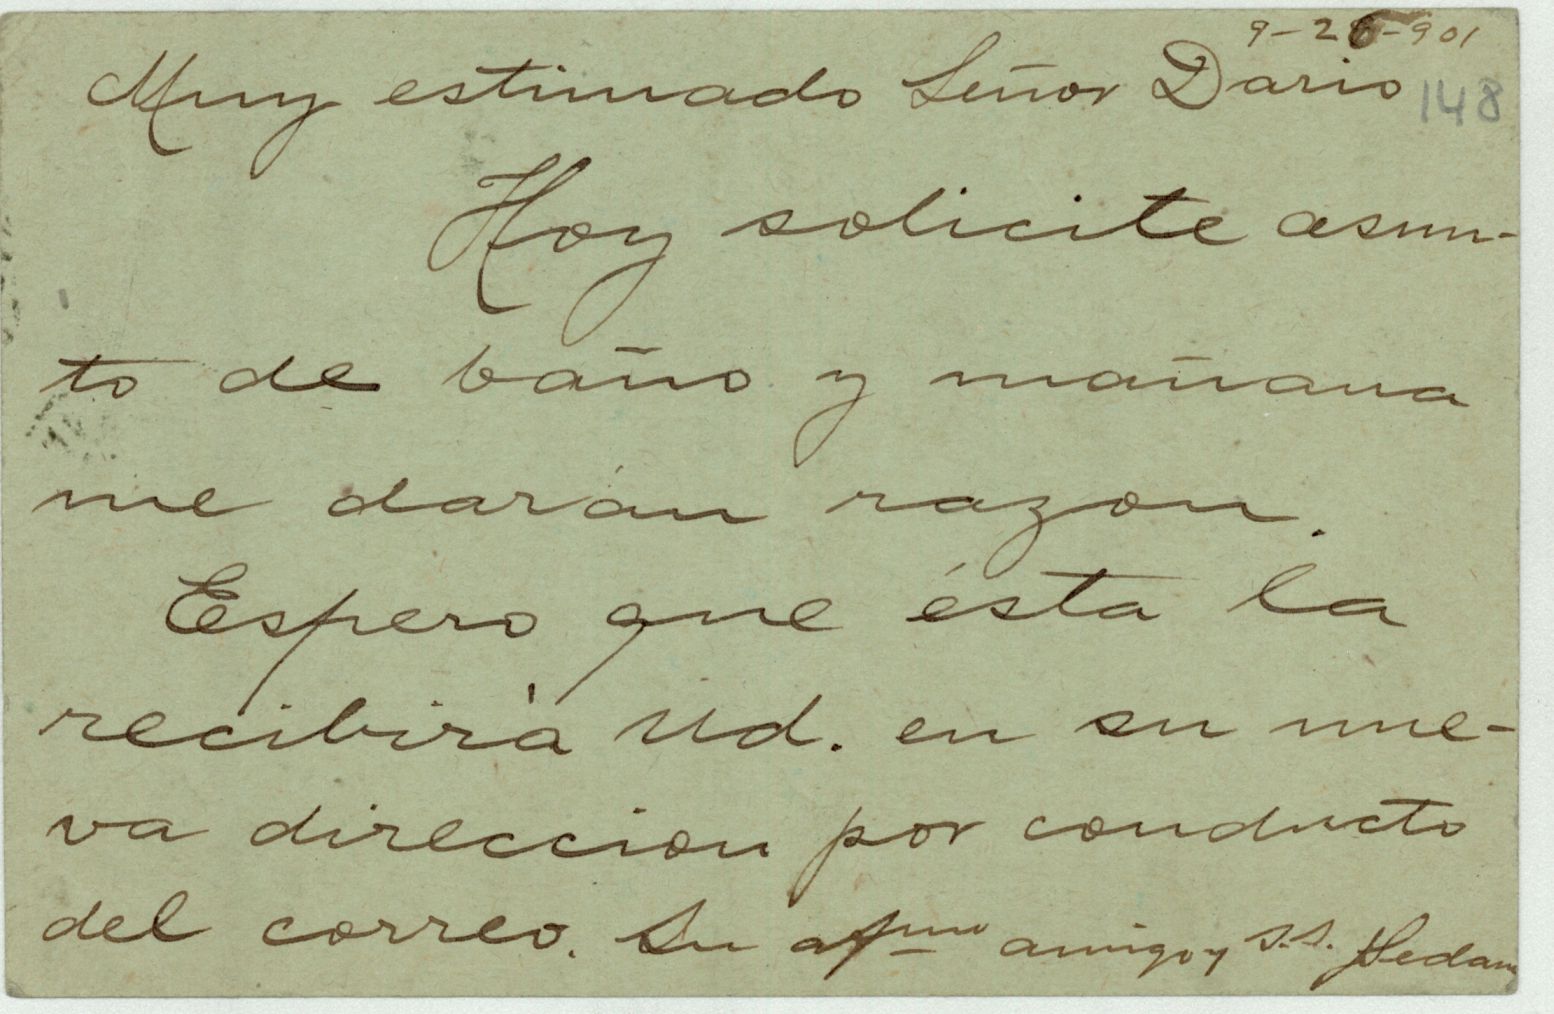 9-26-901
Muy estimado Señor Dario
148
Hoy solicite asun-
to de baño y mañana
me darán razon.
Espero que ésta la
recibirá Ud. en su nue-
va direccion por conducto
del correo. Su afmo amigo y S.S.